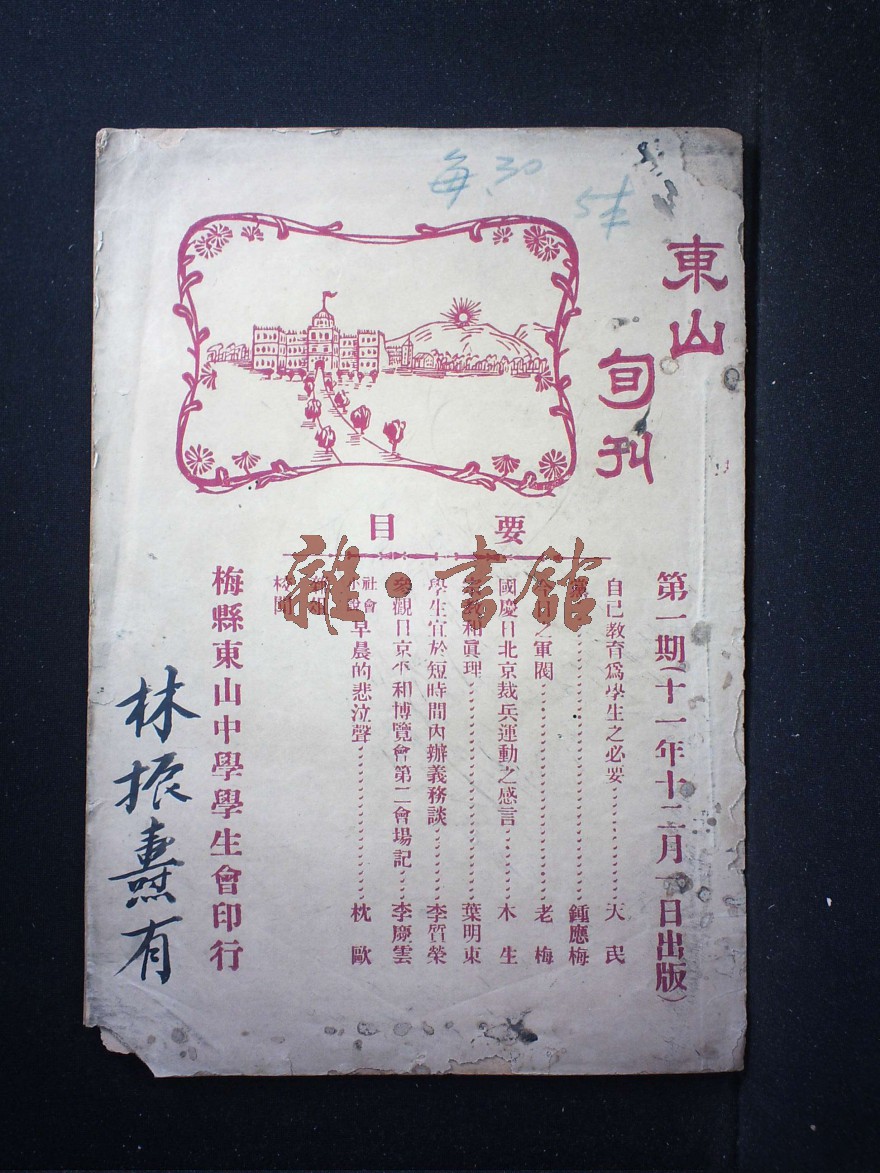 每 30
5本
東山
旬刊
第一期(十一年十二月一日出版)
要目
自己教育爲學生之必要 天民
鍾應梅
今日之軍閥 老梅
國慶日北京裁兵運動之感言 木生
宗教和眞理 葉明東
學生宜於短時間內辦義務談 李質榮
參觀日京平和博覽會第二會場記 李慶雲
社會小說 早晨的悲泣聲 枕歐
校聞
梅縣東山中學學生會印行
林振燾有
雜·書館